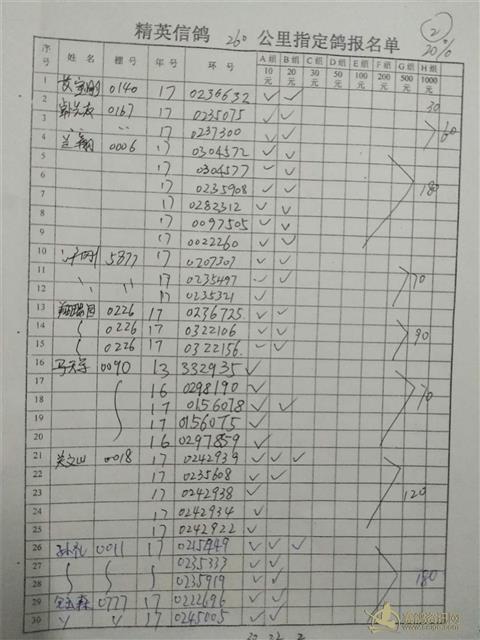 ②
20%
精英信鸽 260 公里指定鸽报名单
序号 姓名 棚号 年号 环号 A组10元 B组20元 C组30元 D组50元 E组100元 F组200元 G组500元 H组1000元
1 0140 17 0236632 ✓ ✓ 30
2 0167 17 0235075 ✓ ✓ 60
3 〃 〃 17 0237300 ✓ ✓
4 兰翔 0006 17 0304572 ✓ ✓
5 17 0304577 ✓ ✓
6 17 0235908 ✓ ✓ 180
7 17 0282312 ✓ ✓
8 17 0097505 ✓ ✓
9 17 0022260 ✓ ✓
10 5877 17 0207307 ✓ ✓
11 〃 〃 17 0235497 ✓ ✓ 70
12 〃 〃 17 0235321 ✓
13 0226 17 0236725 ✓ ✓
14 0226 17 0322106 ✓ ✓ 90
15 0226 17 0322156 ✓ ✓
16 0090 13 332935 ✓
17 16 0298190 ✓
18 17 0156078 ✓ ✓ 70
19 17 0156075 ✓
20 16 0297859 ✓
21 关文山 0018 17 0242939 ✓ ✓ ✓
22 17 0235608 ✓ ✓
23 17 0242938 ✓ 120
24 17 0242934 ✓
25 17 0242922 ✓
26 孙礼 0011 17 ✓ ✓ ✓
27 0235333 ✓ ✓
28 0235919 ✓ ✓ 180
29 0777 17 0222696 ✓ ✓
30 0245005 ✓ ✓
30 22 2